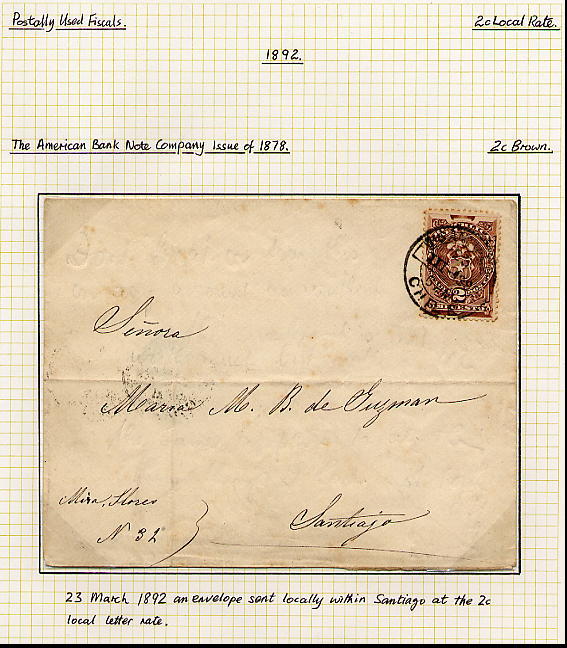 Postally Used Fiscals.
2c Local Rate.
1892.
The American Bank Note Company Issue of 1878.
2c Brown.
2
CENTAVOS
Señora
Maria M. B. de Guzman
Mira, flores
N 32
Santiago
23 March 1892 an envelope sent locally within Santiago at the 2c
local letter rate.